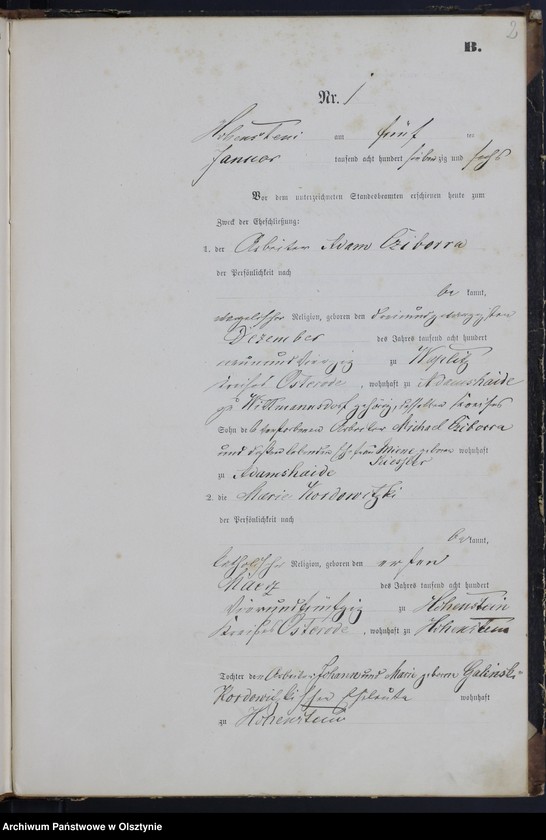 2
B.
Nr. 1
Hohenstein am fünf ten
Januar tausend acht hundert siebenzig und sechs
Vor dem unterzeichneten Standesbeamten erschienen heute zum
Zweck der Eheschließung:
1. der Arbeiter Adam Cziborra
der Persönlichkeit nach
be kannt,
evangelischer Religion, geboren den dreiundzwanzigsten
Dezember des Jahres tausend acht hundert
neunundvierzig zu
Kreises Osterode, wohnhaft zu Adamshaide
zu Wittmannsdorf gehörig, desselben Kreises
Sohn des verstorbenen Arbeiter Michael Cziborra
und dessen Ehefrau Mine geborene wohnhaft
zu Adamshaide
2. die Marie Kordowitzki
der Persönlichkeit nach
be kannt,
katholischer Religion, geboren den ersten
März des Jahres tausend acht hundert
vierundfünfzig zu Hohenstein
Kreises Osterode, wohnhaft zu Hohenstein
Tochter der Arbeiter Johann und Marie geborene Galinski-
Kordowitzkischen Eheleute wohnhaft
zu Hohenstein
Archiwum Państwowe w Olsztynie